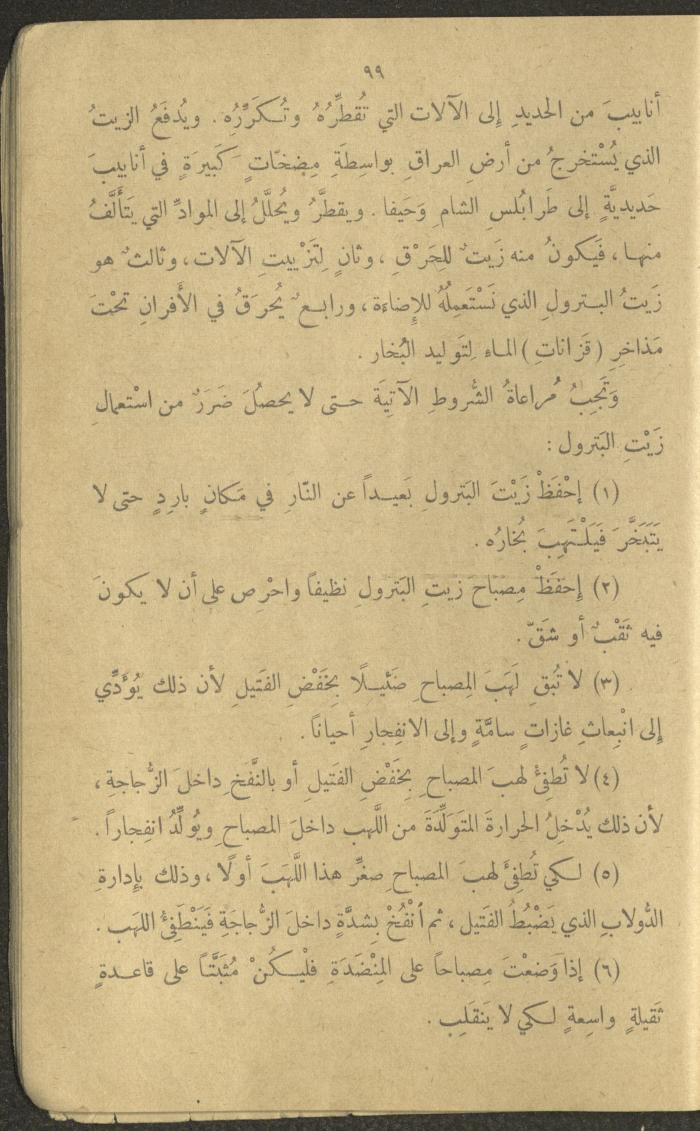 ٩٩
أنابيبَ من الحديدِ إلى الآلات التي تُقطِّرُهُ وتُكَرِّرُه. ويُدفَعُ الزيتُ
الذي يُسْتخرجُ من أرضِ العراقِ بواسِطَةِ مِضخّاتٍ كَبيرَةٍ في أنابيبَ
حَديديَّةٍ إلى طَرابُلسِ الشامِ وَحَيفا. ويقطَّرُ ويُحلَّلُ إلى الموادِّ التي يَتَألَّفُ
منها، فَيَكونُ منه زَيتٌ للحَرْقِ، وثانٍ لِتَزْييتِ الآلات، وثالثٌ هو
زَيتُ البترولِ الذي نَسْتَعمِلُهُ للإضاءة، ورابعٌ يُحرَقُ في الأَفرانِ تحْتَ
مَذاخِرِ (قَزاناتِ) الماءِ لِتَوليد البُخار.
وَتَجِبُ مُراعاةُ الشُّروطِ الآتِيَة حتى لا يحصُلَ ضَرَرٌ من اسْتعمالِ
زَيْتِ البَترول:
(١) إحْفَظْ زَيْتَ البَترولِ بَعيداً عن النّارِ في مَكانٍ بارِدٍ حتى لا
يَتَبَخَّرَ فَيَلْتَهِبَ بُخارُه.
(٢) إحفَظْ مِصباحَ زيتِ البَترولِ نظيفاً واحْرِص على أن لا يكونَ
فيه ثَقْبٌ أو شَقّ.
(٣) لا تُبقِ لَهَبَ المِصباحِ ضَئيلًا بِخَفْضِ الفَتيلِ لأن ذلك يُؤَدِّي
إلى انْبِعاثِ غازاتٍ سامَّةٍ وإلى الانفِجارِ أحياناً.
(٤) لا تُطفِئْ لهبَ المصباحِ بِخَفْضِ الفَتيلِ أو بالنَّفخِ داخلَ الزُّجاجةِ،
لأن ذلك يُدْخِلُ الحرارةَ المتوَلِّدَةَ من اللَّهب داخلَ المصباحِ ويُولِّدُ انفِجاراً.
(٥) لكي تُطفِئَ لهبَ المصباحِ صغِّر هذا اللَّهَبَ أولًا، وذلك بإدارةِ
الدُّولابِ الذي يَضْبُطُ الفَتيل، ثم أنْفُخْ بِشدَّةٍ داخلَ الزُّجاجَةِ فَيَنْطَفِئُ اللهَب.
(٦) إذا وَضعْتَ مِصباحاً على المِنْضَدَةِ فلْيكُنْ مُثبَّتاً على قاعدةٍ
ثَقيلةٍ واسِعةٍ لكي لا يَنقَلِب.